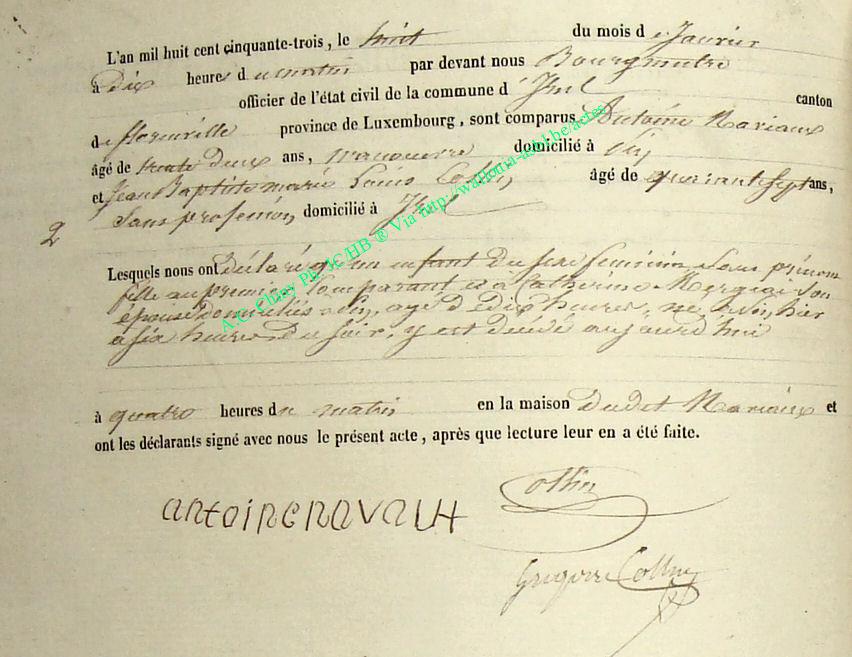 L'an mil huit cent cinquante-trois, le huit du mois de Janvier
à dix heures du matin par devant nous Bourgmestre
officier de l'état civil de la commune d' Izel canton
de florenville province de Luxembourg, sont comparus Antoine Naviaux
âgé de trente deux ans, manoeuvre domicilié à
et Jean Baptiste marie âgé de quarante sept ans,
Sans profession, domicilié à Izel
2
Lesquels nous ont déclaré qu'un enfant du sexe feminin Sans prénom
fille au premier Comparant et à Catherine son
épouse domiciliés à agé de Dix heures, né hier
a six heures du soir, y est décédé aujourd'hui
à quatre heures du matin en la maison dudit Naviaux et
ont les déclarants signé avec nous le présent acte, après que lecture leur en a été faite.
Collin
antoine navaux
Gregoire Collin
A.C. Chiny Ph. JCHB ® Via http://wallonia-asbl.be/actes